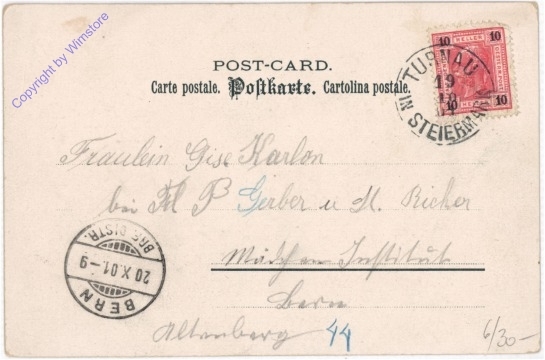 Copyright by Wimstore
POST-CARD.
Carte postale. Postkarte. Cartolina postale.
10 HELLER 10
10 10
TURNAU
19
IN STEIERMARK
Fräulein Gise Karlon
bei Frl P Gerber u M. Richer
Mädchen Institut
Bern
Altenberg 44
BERN
20.X.01.-9
BRF. DISTR.
6/30-